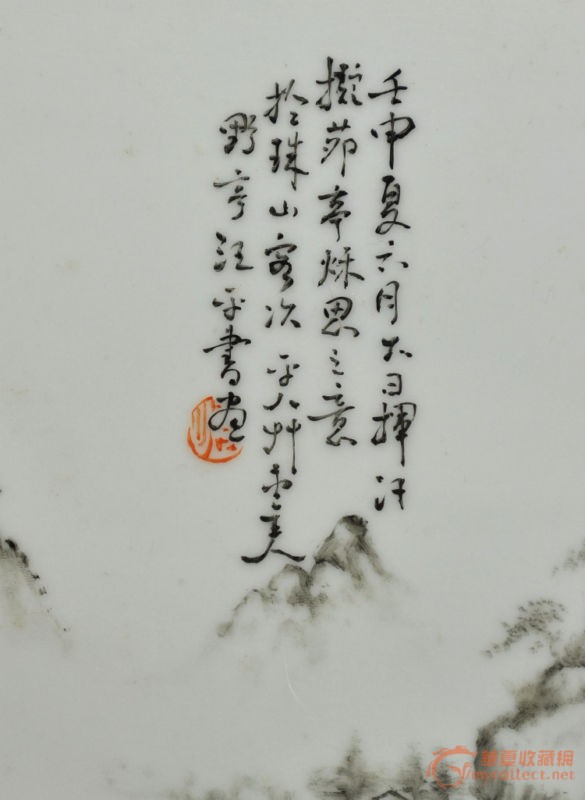 壬申夏六月六日揮汗
擬茆亭秌思之意
於珠山客次平山艸堂主人
野亭汪平書画
華夏收藏網
mycollect.net